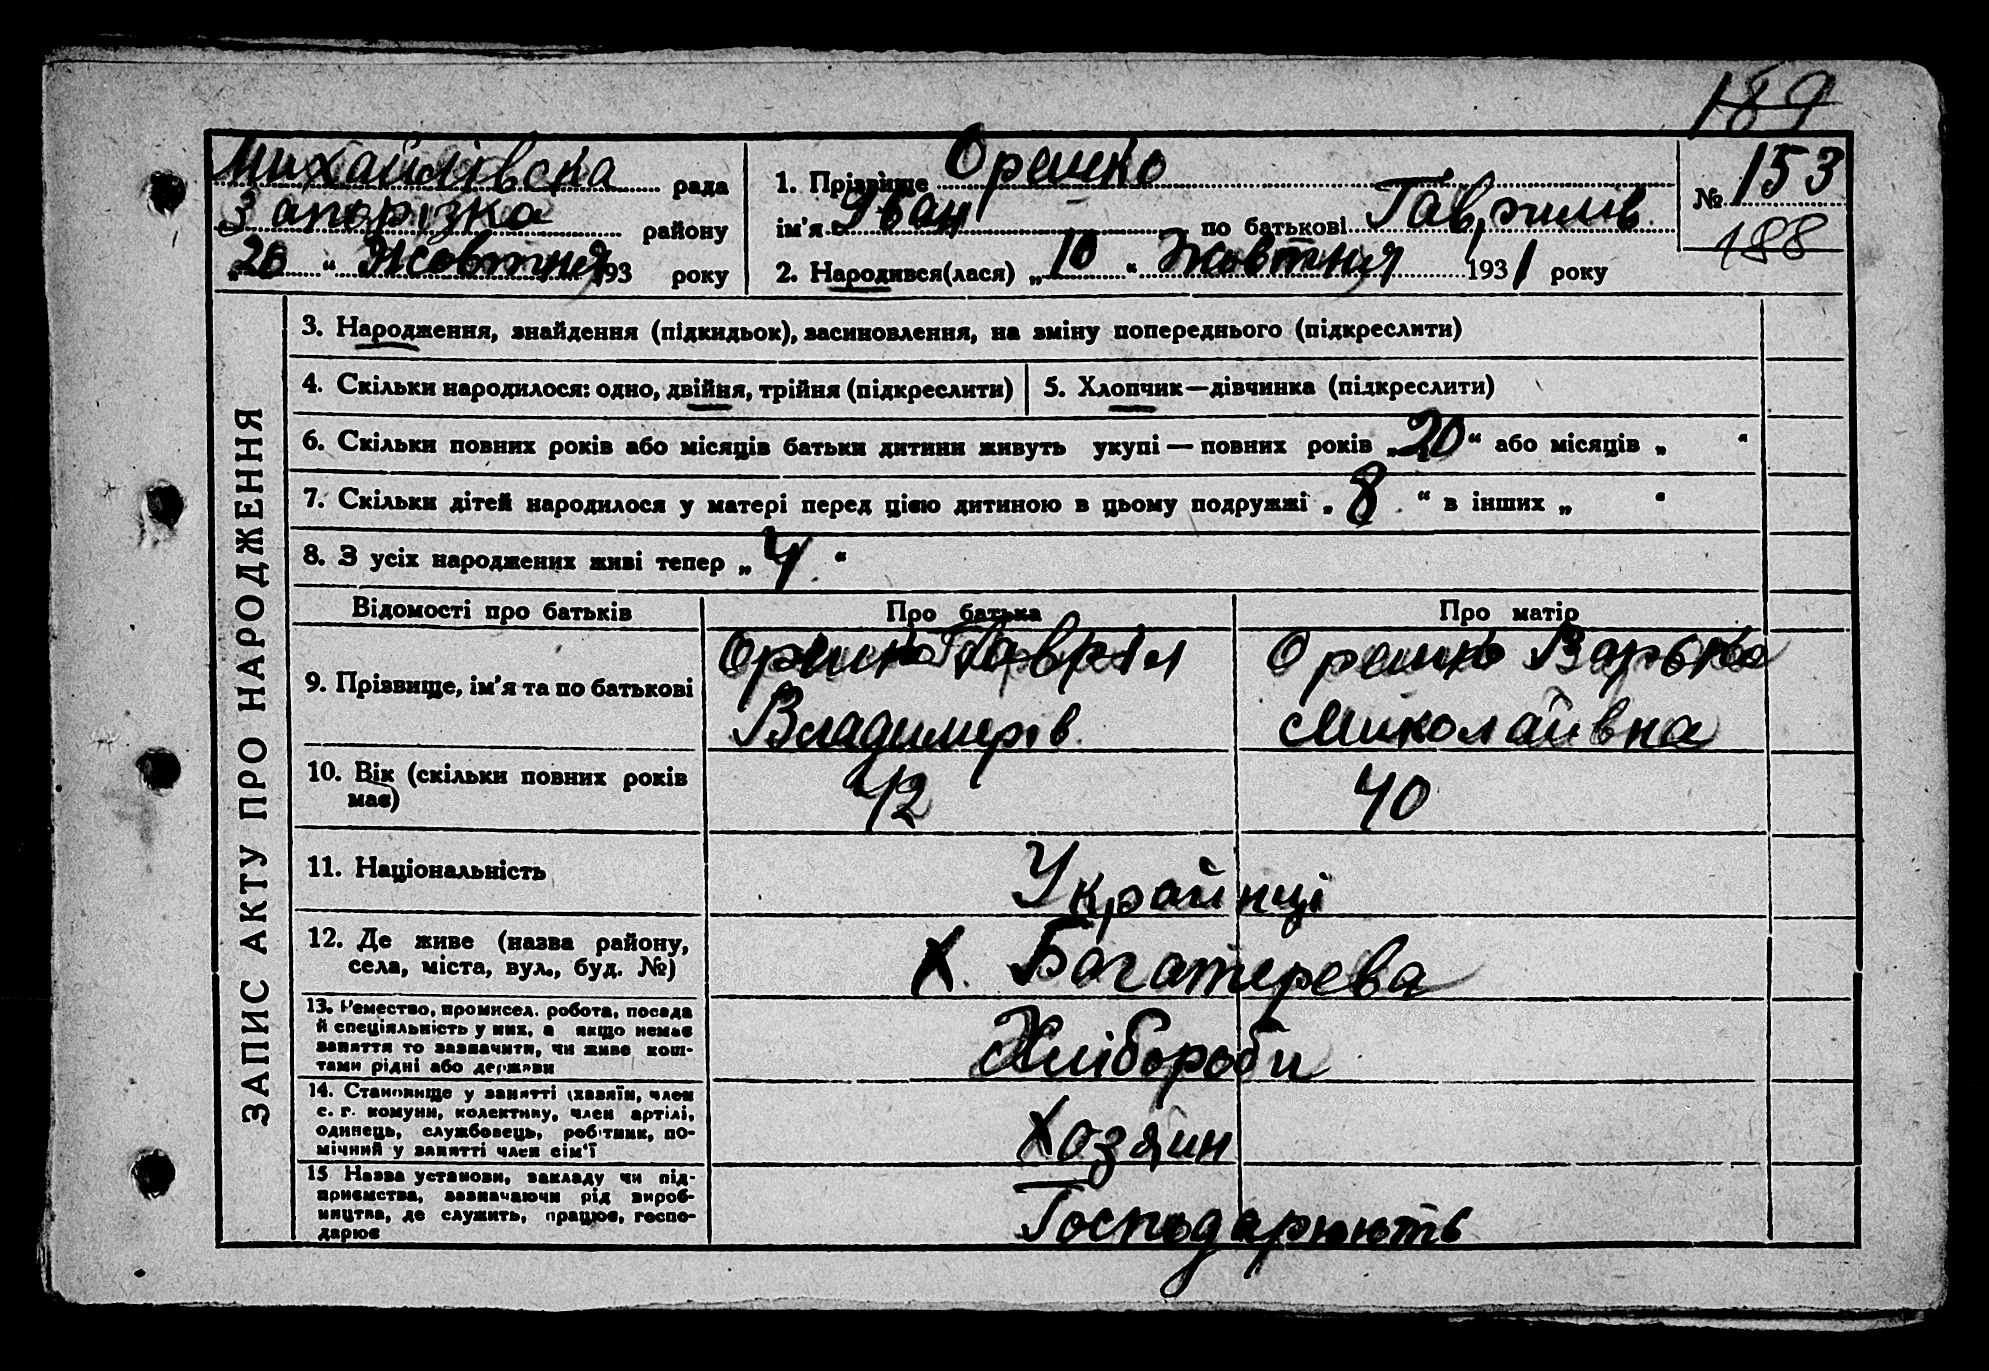 189
Михайлівська рада
Запорізка району
„20“ Жовтня 193 року
1. Прізвище Орешко
ім'я Іван по батькові Гаврилів
2. Народився(лася) „10“ Жовтня 1931 року
№ 153
188
ЗАПИС АКТУ ПРО НАРОДЖЕННЯ
3. Народження, знайдення (підкидьок), засиновлення, на зміну попереднього (підкреслити)
4. Скільки народилося: одно, двійня, трійня (підкреслити)
5. Хлопчик—дівчинка (підкреслити)
6. Скільки повних років або місяців батьки дитини живуть укупі — повних років „20“ або місяців „ “
7. Скільки дітей народилося у матері перед цією дитиною в цьому подружжі „8“ в інших „ “
8. З усіх народжених живі тепер „4“
Відомості про батьків Про батька Про матір
9. Прізвище, ім'я та по батькові
Орешко Гавріл
Владимерів
Орешко Варька
Миколаївна
10. Вік (скільки повних років
має)
42
40
11. Національність
Українці
12. Де живе (назва району,
села, міста, вул., буд. №)
Х. Богатерева
13. Ремество, промисел. робота, посада
й спеціяльність у них, а якщо немає
заняття то зазначити, чи живе кош-
тами рідні або держави
Хлібороби
14. Становище у занятті (хазяїн, член
с. г. комуни, колективу, член артілі,
одинець, службовець, робітник, по-
мічний у занятті член сім'ї
Хозяин
15 Назва установи, закладу чи під-
приємства, зазначаючи рід вироб-
ництва, де служить, працює, госпо-
дарює
Господарюють